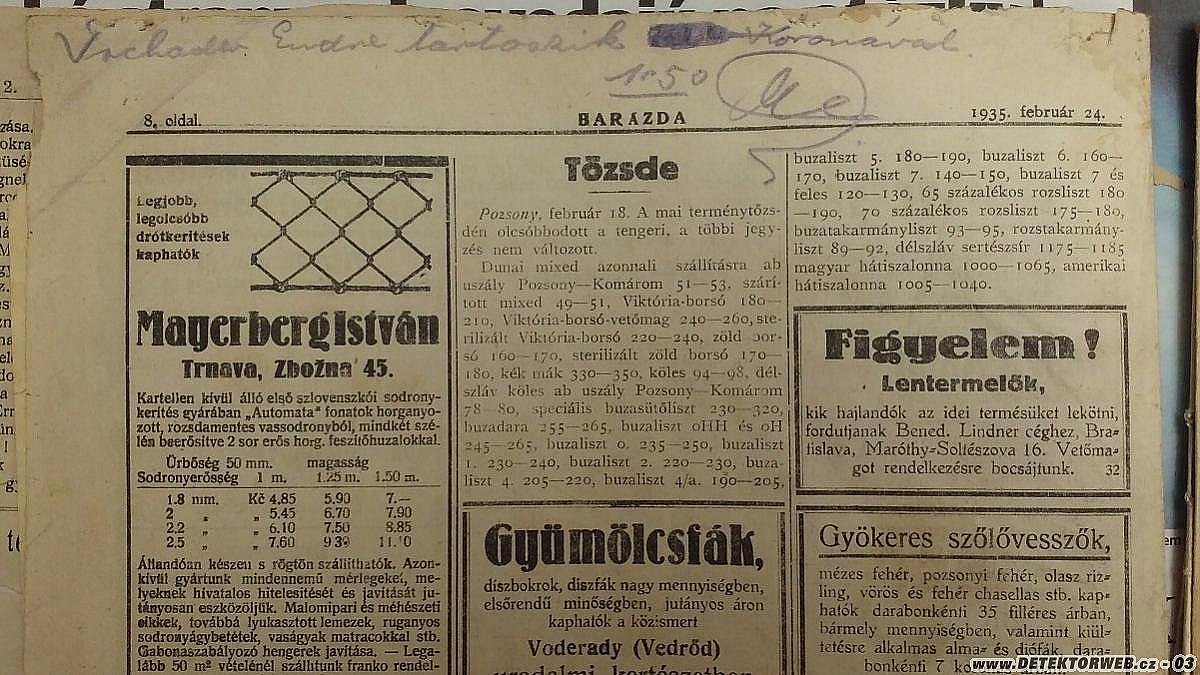 Endre tartoszik Koronával
1·50
8. oldal. BARÁZDA 1935. február 24.
Legjobb,
legolcsóbb
drótkerítések
kaphatók
Mayerberg István
Trnava, Zbožna 45.
Kartellen kívül álló első szlovenszkói sodrony-
kerítés gyárában „Automata" fonatok horganyo-
zott, rozsdamentes vassodronyból, mindkét szé-
lén beerősítve 2 sor erős horg. feszítőhuzalokkal.
Űrbőség 50 mm. magasság
Sodronyerősség 1 m. 1.25 m. 1.50 m.
1.8 mm. Kč 4.85 5.90 7.—
2 „ „ 5.45 6.70 7.90
2.2 „ „ 6.10 7.50 8.85
2.5 „ „ 7.60 9.30 11.10
Állandóan készen s rögtön szállíthatók. Azon-
kívül gyártunk mindennemű mérlegeket, me-
lyeknek hivatalos hitelesítését és javítását ju-
tányosan eszközöljük. Malomipari és méhészeti
cikkek, továbbá lyukasztott lemezek, ruganyos
sodronyágybetétek, vaságyak matracokkal stb.
Gabonaszabályozó hengerek javítása. — Lega-
lább 50 m² vételénél szállítunk franko rendel-
Tőzsde
Pozsony, február 18. A mai terménytőzs-
dén olcsóbbodott a tengeri, a többi jegy-
zés nem változott.
Dunai mixed azonnali szállításra ab
uszály Pozsony—Komárom 51—53, szárí-
tott mixed 49—51, Viktória-borsó 180—
210, Viktória-borsó-vetőmag 240—260, ste-
rilizált Viktória-borsó 220—240, zöld bor-
só 160—170, sterilizált zöld borsó 170—
180, kék mák 330—350, köles 94—98, dél-
szláv köles ab uszály Pozsony—Komárom
78—80, speciális buzasütőliszt 230—320,
buzadara 255—265, buzaliszt oHH és oH
245—265, buzaliszt 0. 235—250, buzaliszt
1. 230—240, buzaliszt 2. 220—230, buza-
liszt 4. 205—220, buzaliszt 4/a. 190—205,
Gyümölcsfák,
díszbokrok, díszfák nagy mennyiségben,
elsőrendű minőségben, jutányos áron
kaphatók a közismert
Voderady (Vedrőd)
uradalmi kertészetben
buzaliszt 5. 180—190, buzaliszt 6. 160—
170, buzaliszt 7. 140—150, buzaliszt 7 és
feles 120—130, 65 százalékos rozsliszt 180
—190, 70 százalékos rozsliszt 175—180,
buzatakarmányliszt 93—95, rozstakarmány-
liszt 89—92, délszláv sertészsír 1175—1185
magyar hátiszalonna 1000—1065, amerikai
hátiszalonna 1005—1040.
Figyelem!
Lentermelők,
kik hajlandók az idei termésüket lekötni,
forduljanak Bened. Lindner céghez, Bra-
tislava, Maróthy-Soltészova 16. Vetőma-
got rendelkezésre bocsájtunk. 32
Gyökeres szőlővesszők,
mézes fehér, pozsonyi fehér, olasz riz-
ling, vörös és fehér chasellas stb. kap-
hatók darabonkénti 35 filléres árban,
bármely mennyiségben, valamint kiül-
tetésre alkalmas alma- és diófák, dara-
bonkénti 7
www.DETEKTORWEB.cz - 03